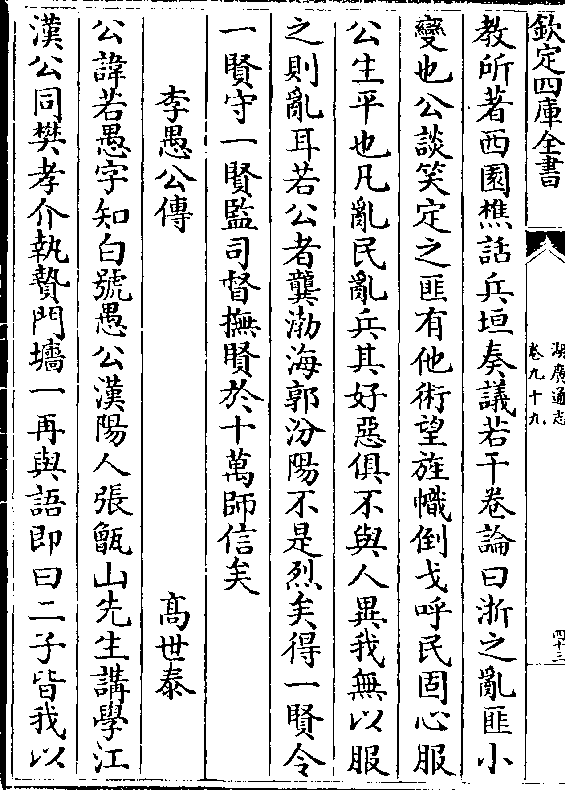 欽定四庫全書
湖廣通志
卷九十九
四十三
教所著西園樵話兵垣奏議若干卷論曰浙之亂匪小
變也公談笑定之匪有他術望旌幟倒戈呼民固心服
公生平也凡亂民亂兵其好惡俱不與人異我無以服
之則亂耳若公者龔渤海郭汾陽不是烈矣得一賢令
一賢守一賢監司督撫賢於十萬師信矣
李愚公傳 高世泰
公諱若愚字知白號愚公漢陽人張甑山先生講學江
漢公同樊孝介執贄門墻一再與語即曰二子皆我以